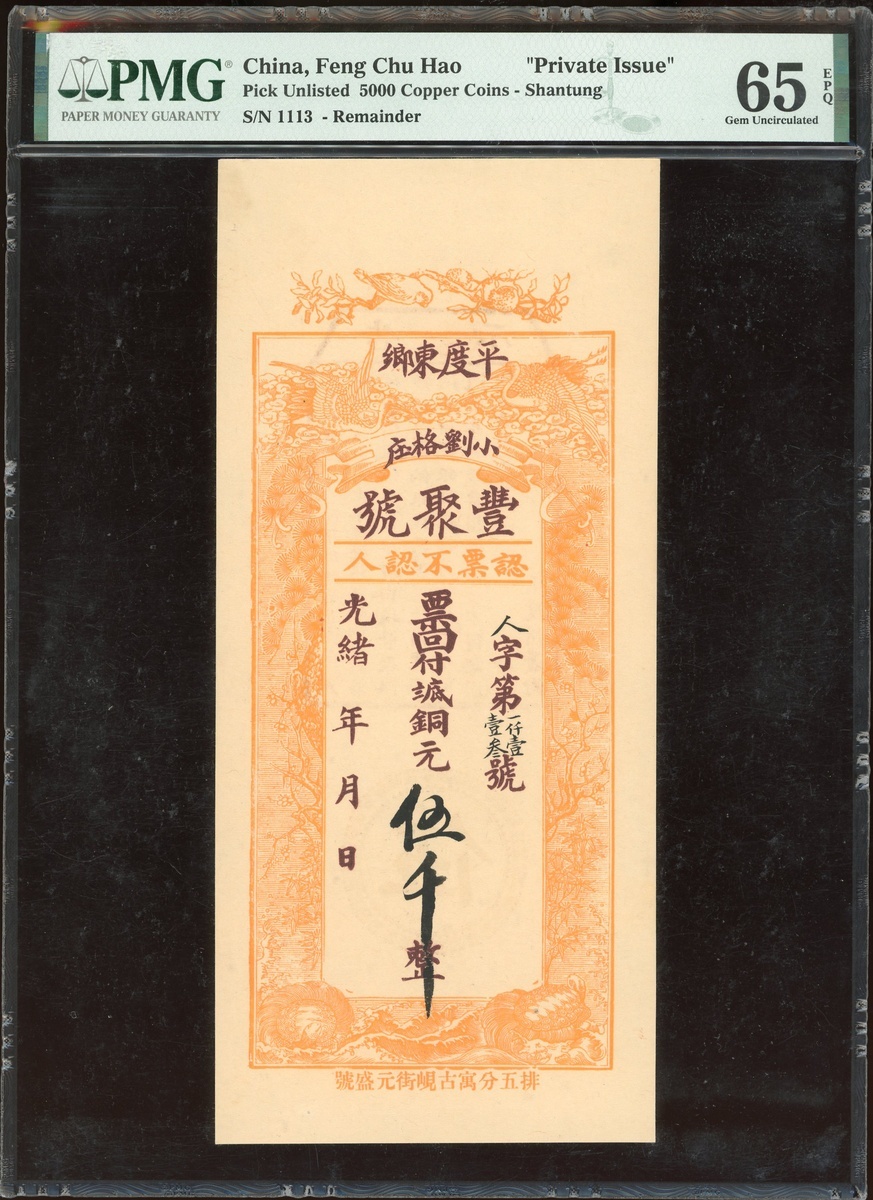 PMG®
PAPER MONEY GUARANTY
China, Feng Chu Hao "Private Issue"
Pick Unlisted 5000 Copper Coins - Shantung
S/N 1113 - Remainder
65 EPQ
Gem Uncirculated
平度東鄉
小劉格庄
豐聚號
認票不認人
人字第一仟壹壹叁號
票回付銅元伍千整
光緒 年 月 日
排五分寓古峴街元盛號